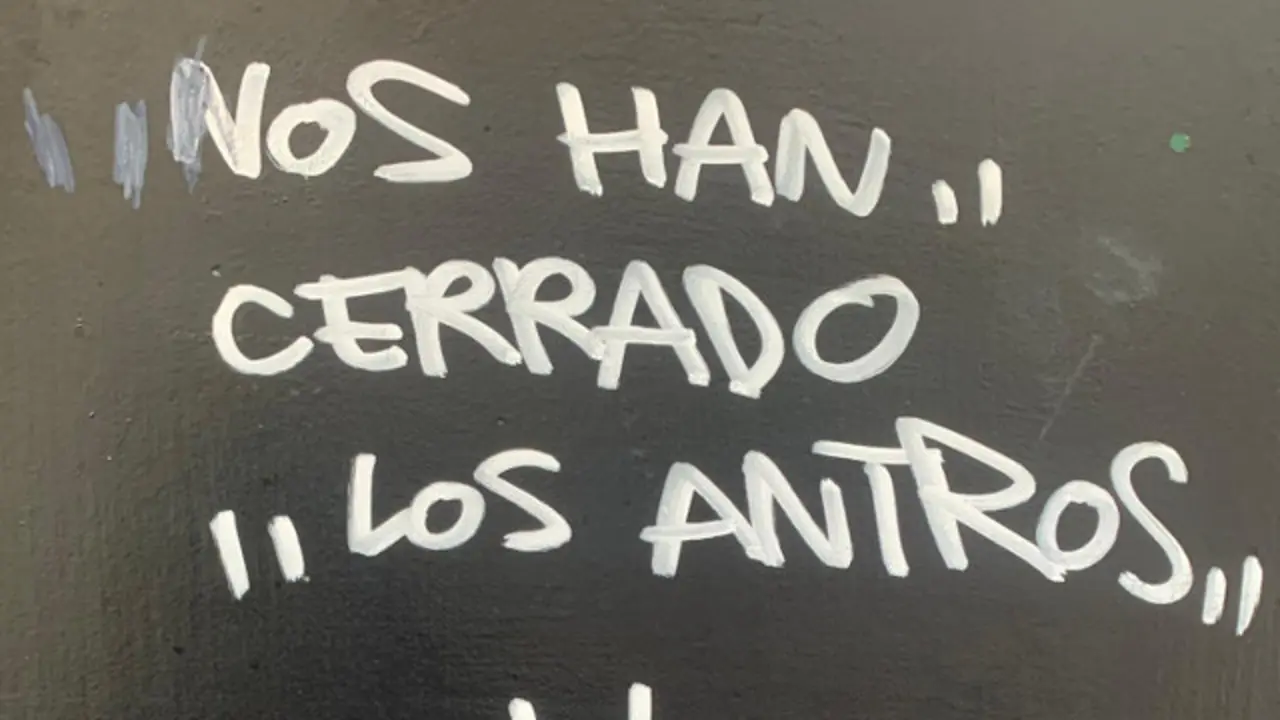 "NOS HAN"
CERRADO
"LOS ANTROS"